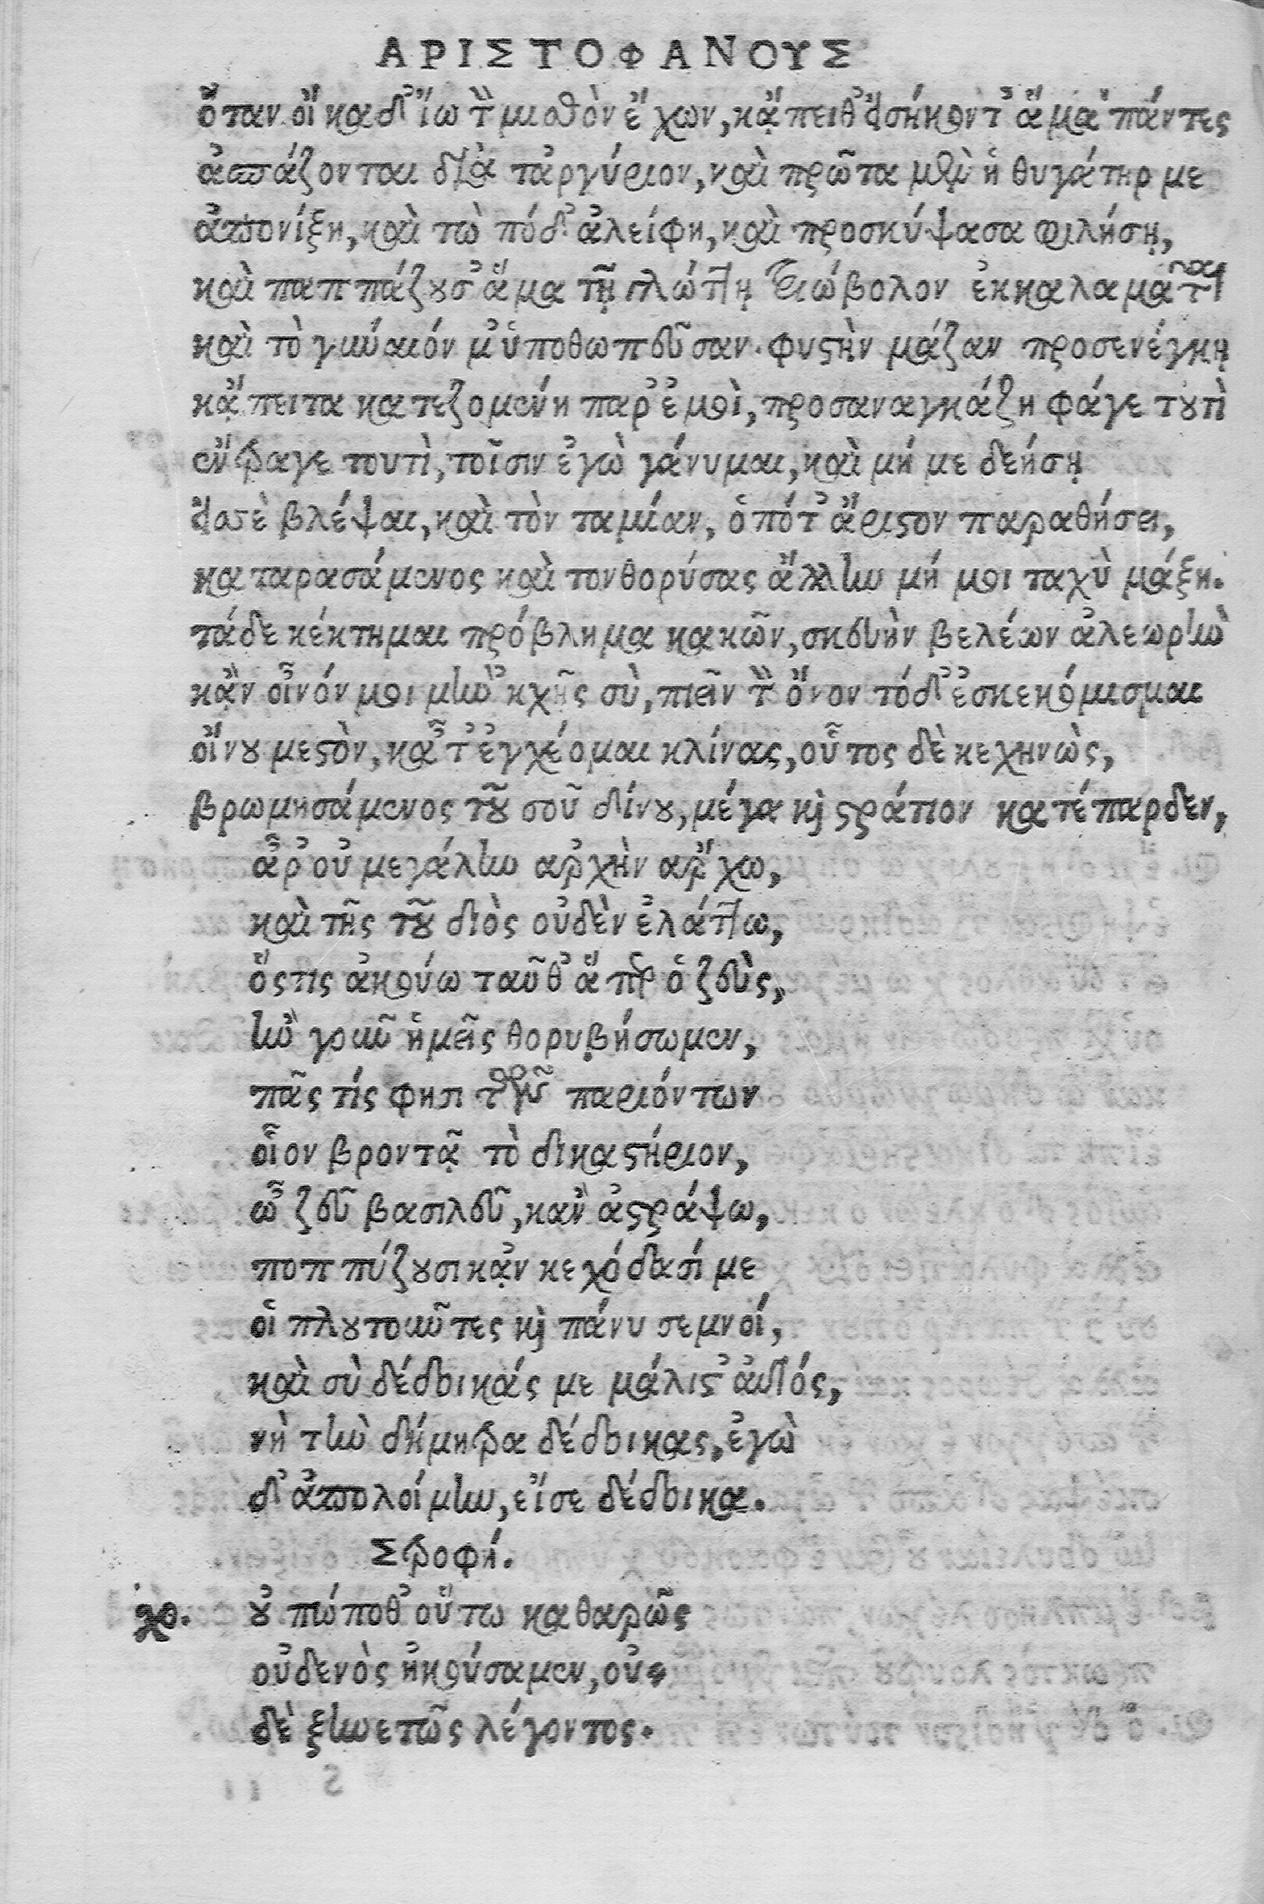 ΑΡΙΣΤΟΦΑΝΟΥΣ
ὅταν οἴκαδ' ἴω τὸν μισθὸν ἔχων, κᾄπειθ' εἰσήκονθ' ἅμα πάντες
ἀσπάζονται διὰ τἀργύριον, καὶ πρῶτα μὲν ἡ θυγάτηρ με
ἀπονίξῃ, καὶ τὼ πόδ' ἀλείφῃ, καὶ προσκύψασα φιλήσῃ,
καὶ παππάζουσ' ἅμα τῇ γλώττῃ τριώβολον ἐκκαλαμᾶται
καὶ τὸ γύναιόν μ' ὑποθωπεῦσαν. φυστὴν μάζαν προσενέγκῃ
κᾄπειτα κατεζομένη παρ' ἐμοὶ, προσαναγκάζῃ φάγε τουτὶ
ἔντραγε τουτὶ, τοῖσιν ἐγὼ γάνυμαι, καὶ μή με δεήσῃ
εἰς σὲ βλέψαι, καὶ τὸν ταμίαν, ὁπότ' ἄριστον παραθήσει,
καταρασάμενος καὶ τονθορύσας ἄλλην μή μοι ταχὺ μάξῃ.
τάδε κέκτημαι πρόβλημα κακῶν, σκευὴν βελέων ἀλεωρὴν
κἂν οἶνόν μοι μὴ 'κχῇς σὺ, πιεῖν τὸν ὄνον τόδ' ἐσκεκόμισμαι
οἴνου μεστὸν, κᾆτ' ἐγχέομαι κλίνας, οὗτος δὲ κεχηνὼς,
βρωμησάμενος τοῦ σοῦ δίνου, μέγα καὶ στράτιον κατέπαρδεν,
ἆρ' οὐ μεγάλην ἀρχὴν ἄρχω,
καὶ τῆς τοῦ διὸς οὐδὲν ἐλάττω,
ὅστις ἀκούω ταῦθ' ἅπερ ὁ ζεὺς,
ἢν γοῦν ἡμεῖς θορυβήσωμεν,
πᾶς τίς φησι τῶν παριόντων
οἷον βροντᾷ τὸ δικαστήριον,
ὦ ζεῦ βασιλεῦ, κἂν ἀστράψω,
ποππύζουσι κᾂν κεχόδασί με
οἱ πλουτοῦντες καὶ πάνυ σεμνοί,
καὶ σὺ δέδοικάς με μάλιστ' αὐτός,
νὴ τὴν δήμητρα δέδοικας, ἐγὼ
δ' ἀπολοίμην, εἴ σε δέδοικα.
Στροφή.
χο. οὐπώποθ' οὕτω καθαρῶς
οὐδενὸς ἠκούσαμεν, οὐ-
δὲ ξυνετῶς λέγοντος.